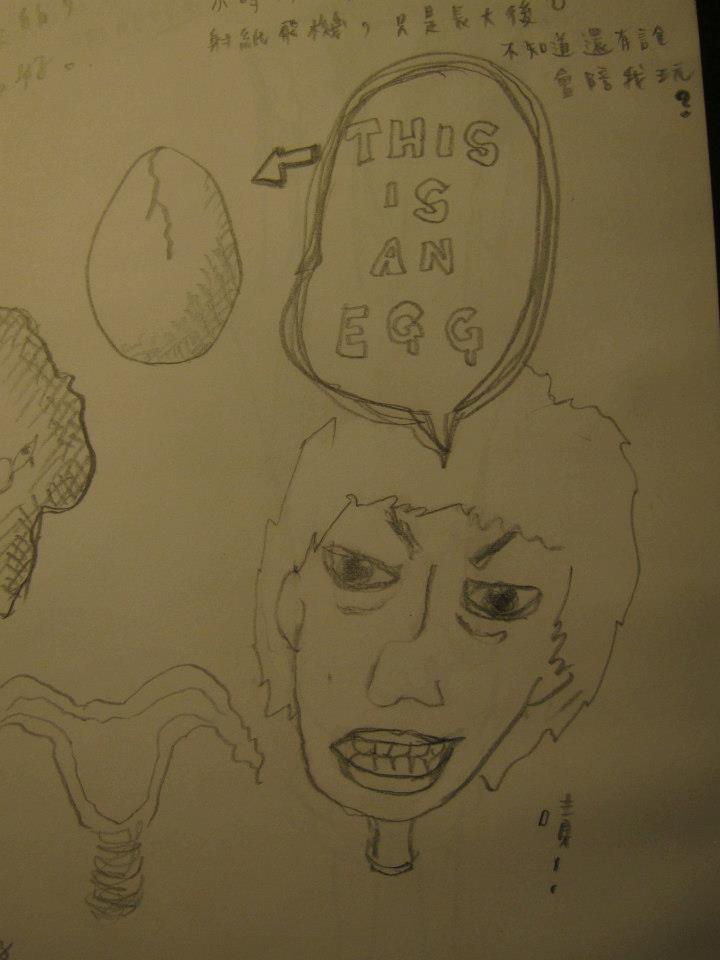 射紙飛機，只是長大後
不知道還有誰
會陪我玩
?
THIS
IS
AN
EGG
嘖!